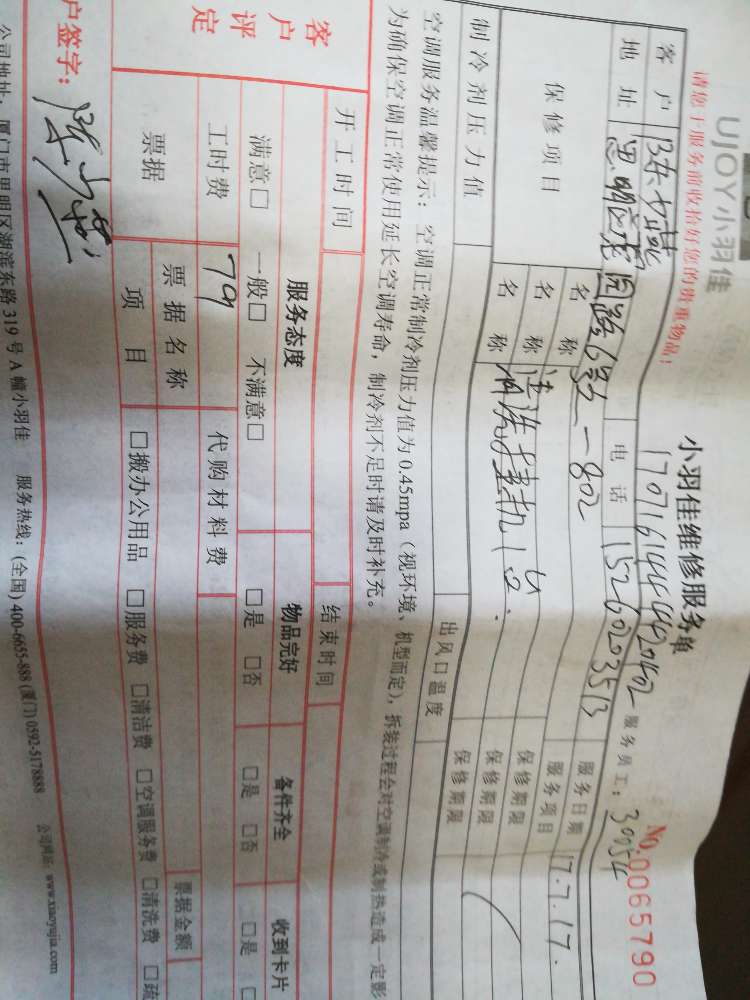 UJOY小羽佳
小羽佳维修服务单
No.0065790
请您于服务前收拾好您的贵重物品！
17071614444420402
服务员工：30054
客户
电话 15260203513
服务日期 17.7.17.
地址 思明
园路
-802
服务项目
保修项目
名称
保修期限
名称 清洗挂机1台.
保修期限
名称
保修期限
制冷剂压力值
出风口温度
空调服务温馨提示：空调正常制冷剂压力值为0.45mpa（视环境、机型而定），拆装过程会对空调制冷或制热造成一定影
为确保空调正常使用延长空调寿命，制冷剂不足时请及时补充。
开工时间
结束时间
客户评定
服务态度
物品完好
备件齐全
收到卡片
满意□ 一般□ 不满意□
□是 □否
□是 □否
□是
工时费 79
代购材料费
票据
票据名称
票据金额
项目
□搬办公用品 □服务费 □清洁费 □空调服务费 □清洗费 □疏
户签字：
公司地址：厦门市思明区湖滨东路319号A幢小羽佳 服务热线：(全国) 400-6655-888 (厦门) 0592-5178888 公司网址：www.xiaoyujia.com